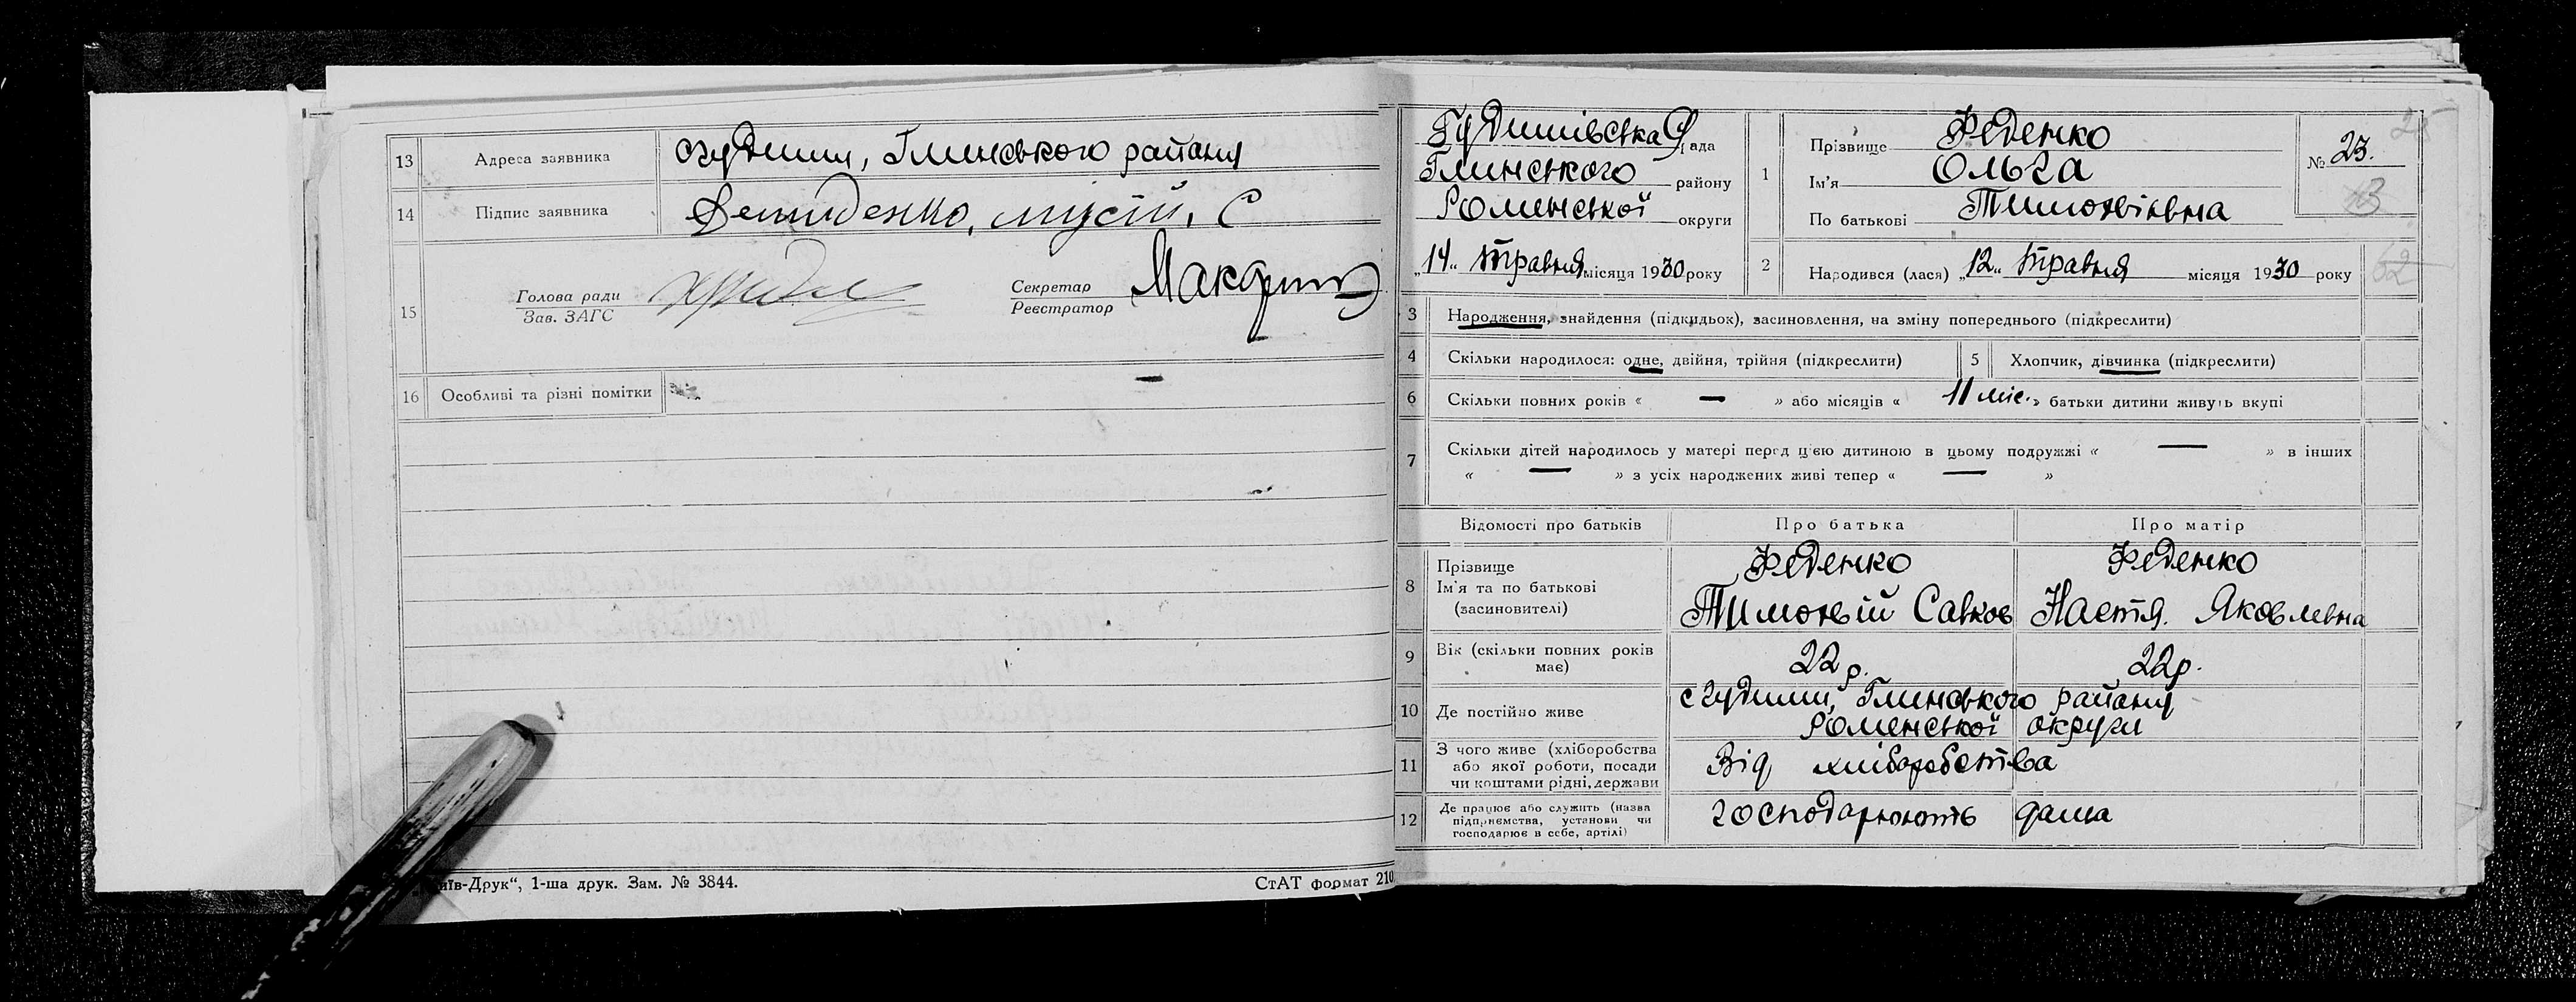 13 Адреса заявника с Гудими, Глинського району
14 Підпис заявника Демиденко, мусій, С
15 Голова ради
Зав. ЗАГС
Секретар
Реєстратор
16 Особливі та різні помітки —
Київ-Друк“, 1-ша друк. Зам. № 3844.
СтАТ формат 210
Гудимівська Рада
Глинського району
Роменської округи
„14„ травня місяця 1930 року
1 Прізвище Феденко
Ім'я Ольга
По батькові Тимофіївна
№ 23.
2 Народився (лася) „12„ травня місяця 1930 року
3 Народження, знайдення (підкидьок), засиновлення, на зміну попереднього (підкреслити)
4 Скільки народилося: одне, двійня, трійня (підкреслити)
5 Хлопчик, дівчинка (підкреслити)
6 Скільки повних років « — » або місяців « 11 міс. » батьки дитини живуть вкупі
7 Скільки дітей народилось у матері перед цією дитиною в цьому подружжі « — » в інших
« — » з усіх народжених живі тепер « — »
Відомості про батьків Про батька Про матір
8 Прізвище Феденко Феденко
Ім'я та по батькові
(засиновителі) Тимофій Савков Настя. Яковлевна
9 Вік (скільки повних років
має) 22 р. 22 р.
10 Де постійно живе с Гудими, Глинського району
Роменської округи
11 З чого живе (хліборобства
або якої роботи, посади
чи коштами рідні, держави
Від хліборобства
12 Де працює або служить (назва
підприємства, установи чи
господарює в себе, артілі)
господарюють